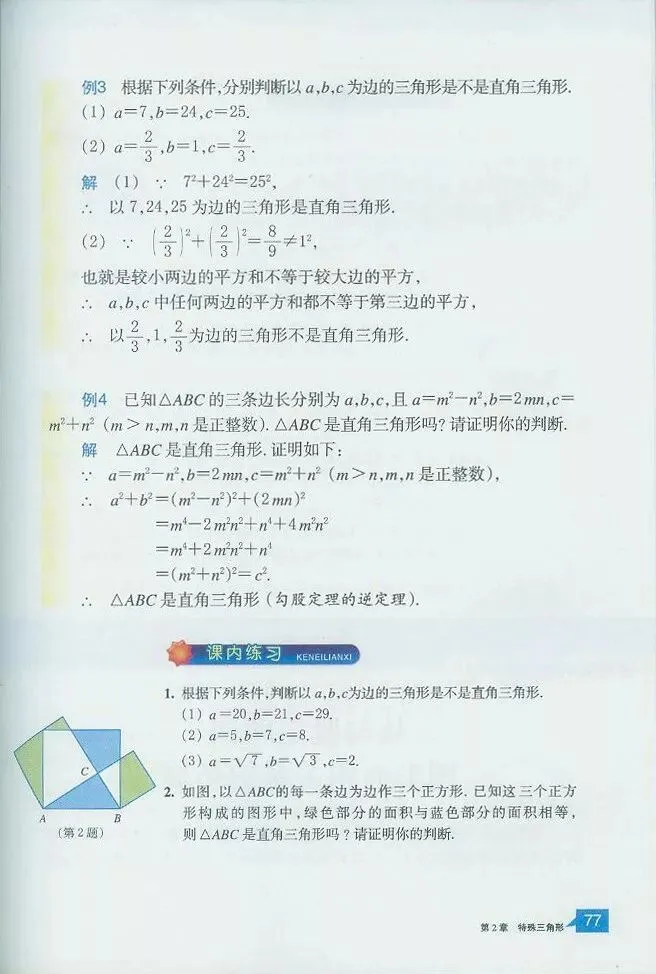 例3 根据下列条件,分别判断以a,b,c为边的三角形是不是直角三角形.
(1) a=7,b=24,c=25.
(2) a=2/3,b=1,c=2/3.
解 (1) ∵ 7²+24²=25²,
∴ 以7,24,25为边的三角形是直角三角形.
(2) ∵ (2/3)²+(2/3)²=8/9≠1²,
也就是较小两边的平方和不等于较大边的平方,
∴ a,b,c中任何两边的平方和都不等于第三边的平方,
∴ 以2/3,1,2/3为边的三角形不是直角三角形.
例4 已知△ABC的三条边长分别为a,b,c,且a=m²-n²,b=2mn,c=
m²+n² (m>n,m,n是正整数). △ABC是直角三角形吗?请证明你的判断.
解 △ABC是直角三角形.证明如下:
∵ a=m²-n²,b=2mn,c=m²+n² (m>n,m,n是正整数),
∴ a²+b²=(m²-n²)²+(2mn)²
=m⁴-2m²n²+n⁴+4m²n²
=m⁴+2m²n²+n⁴
=(m²+n²)²=c².
∴ △ABC是直角三角形(勾股定理的逆定理).
课内练习 KENEILIANXI
1. 根据下列条件,判断以a,b,c为边的三角形是不是直角三角形.
(1) a=20,b=21,c=29.
(2) a=5,b=7,c=8.
(3) a=√7,b=√3,c=2.
2. 如图,以△ABC的每一条边为边作三个正方形. 已知这三个正方
形构成的图形中,绿色部分的面积与蓝色部分的面积相等,
则△ABC是直角三角形吗?请证明你的判断.
C
A B
(第2题)
第2章 特殊三角形 77